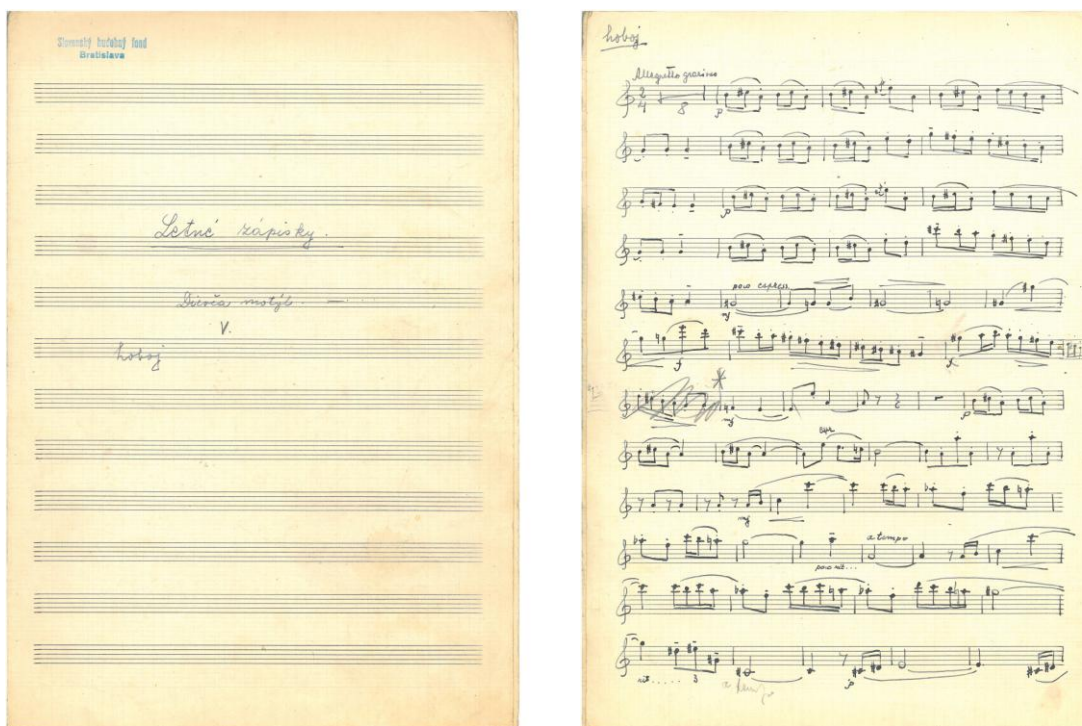 Slovenský hudobný fond
Bratislava
Letné zápisky.
Dievča motýľ.
V.
hoboj
hoboj
Allegretto grazioso
2
4
8
p
p
poco express.
mf
f
f
mf
p
espr.
mf
a tempo
poco rit...
rit..... 3
a tempo
p